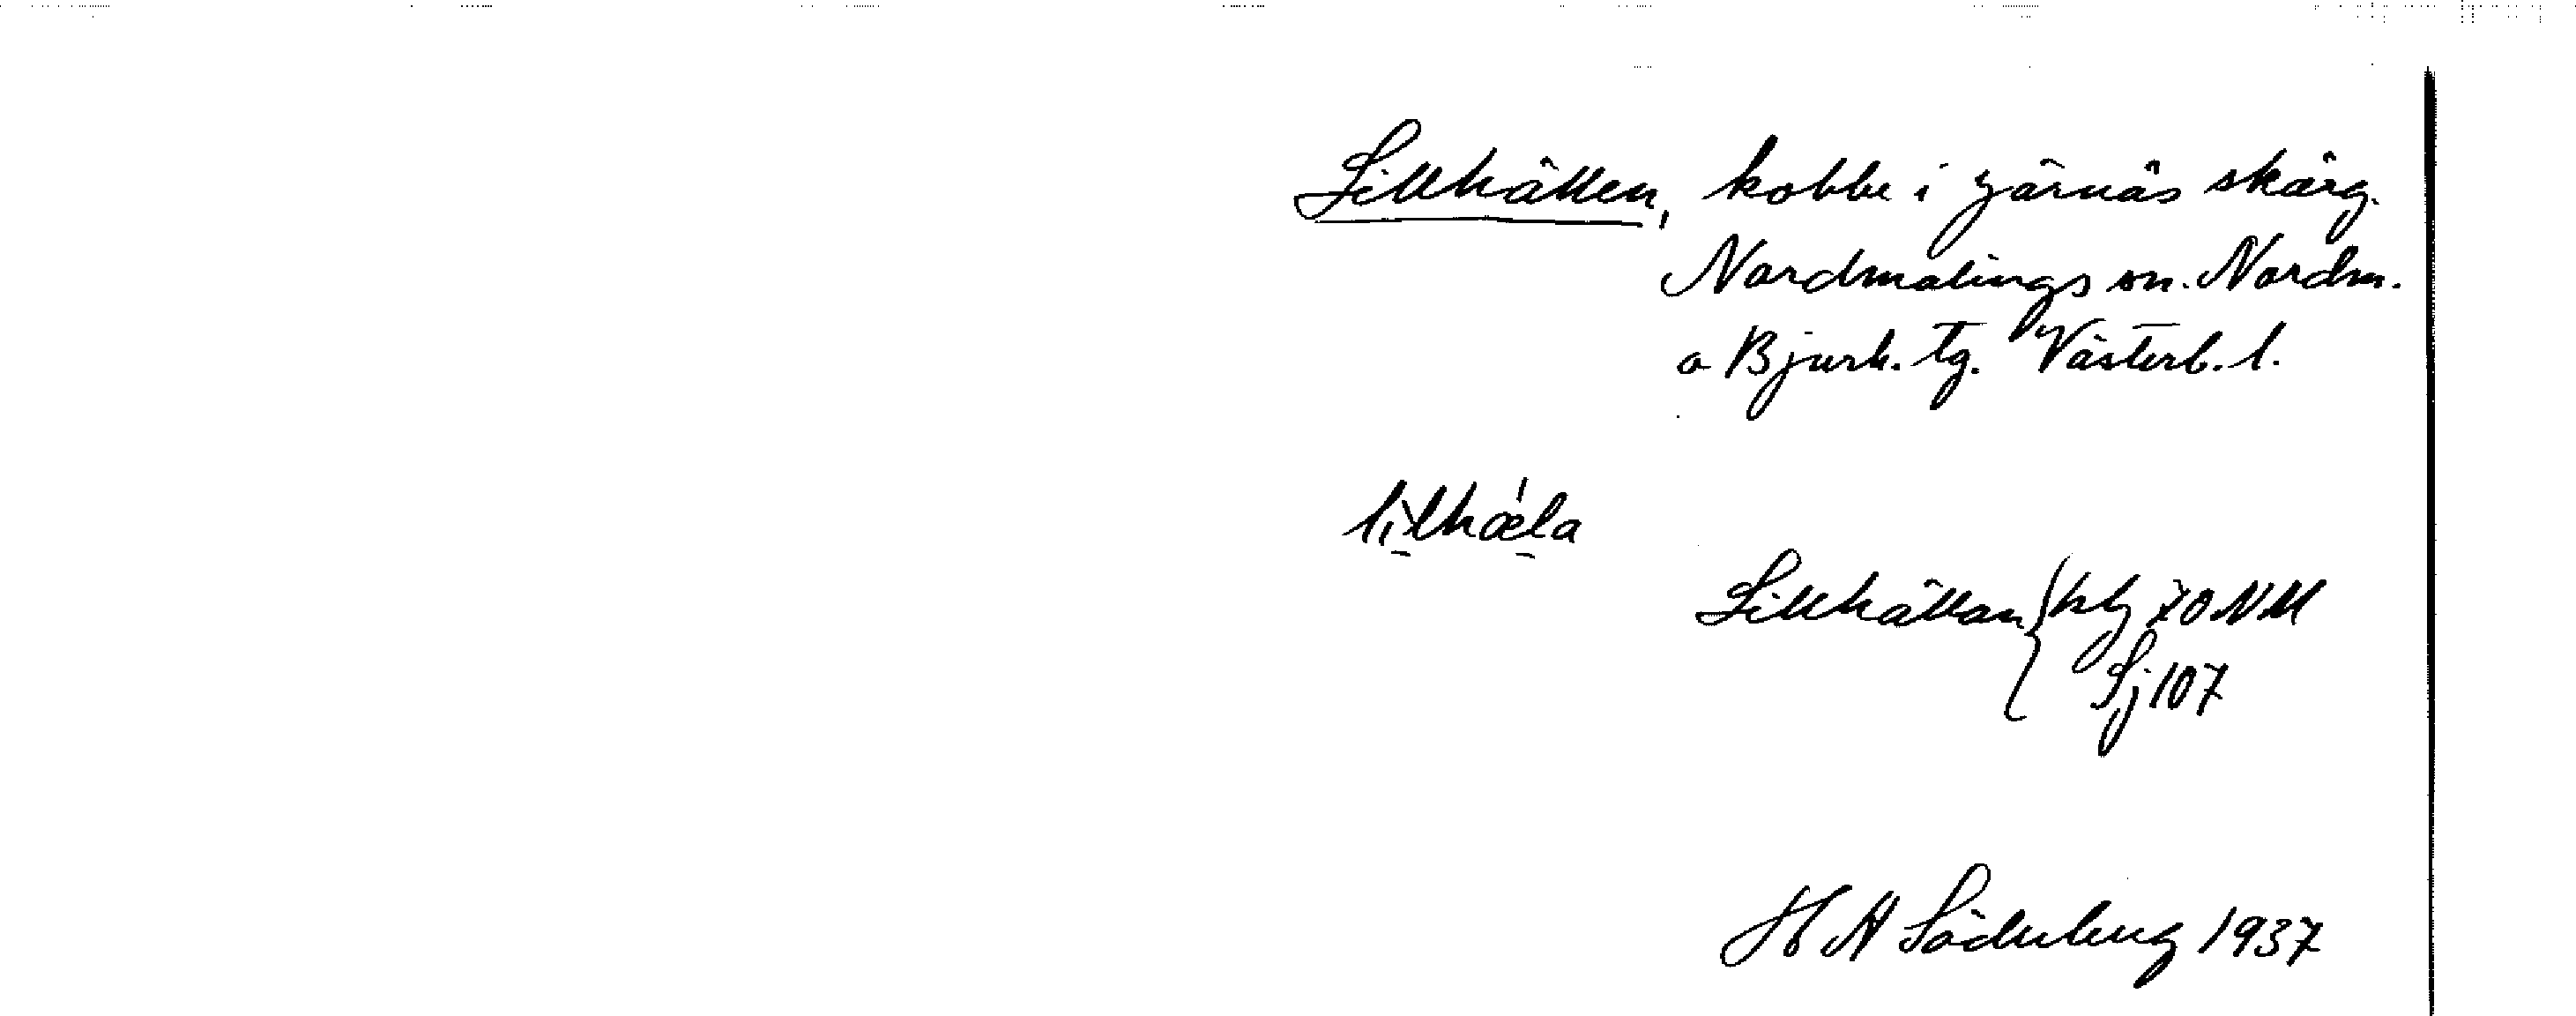 Lillhällen, kobbe i Järnäs skärg.
Nordmalings sn. Nordm.
o Bjurh. tg. Västerb. l.
lilhæla
Lillhällan { blg 70 NM
Sj 107
H A Söderberg 1937